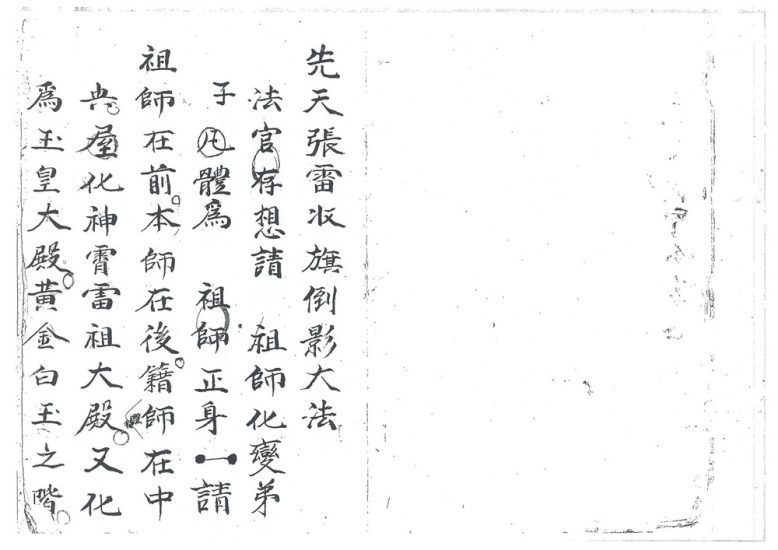 先天張雷收旗倒影大法
法官存想請　祖師化變弟
子凡體爲　祖師正身一請
祖師在前本師在後籍師在中
典屋化神霄雷祖大殿又化
爲玉皇大殿黃金白玉之階